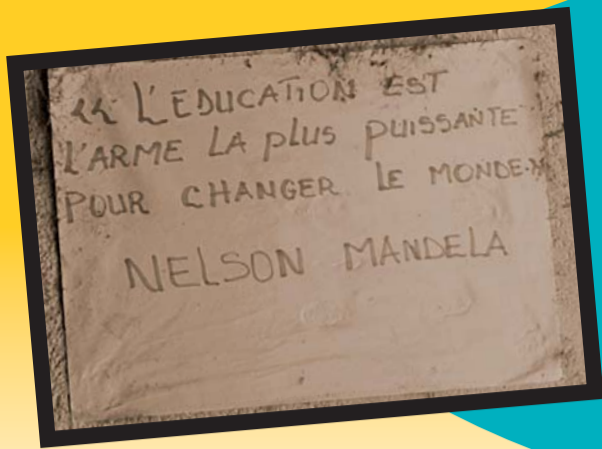 « L'EDUCATION EST
L'ARME LA plus PUISSANTE
POUR CHANGER LE MONDE.»
NELSON MANDELA